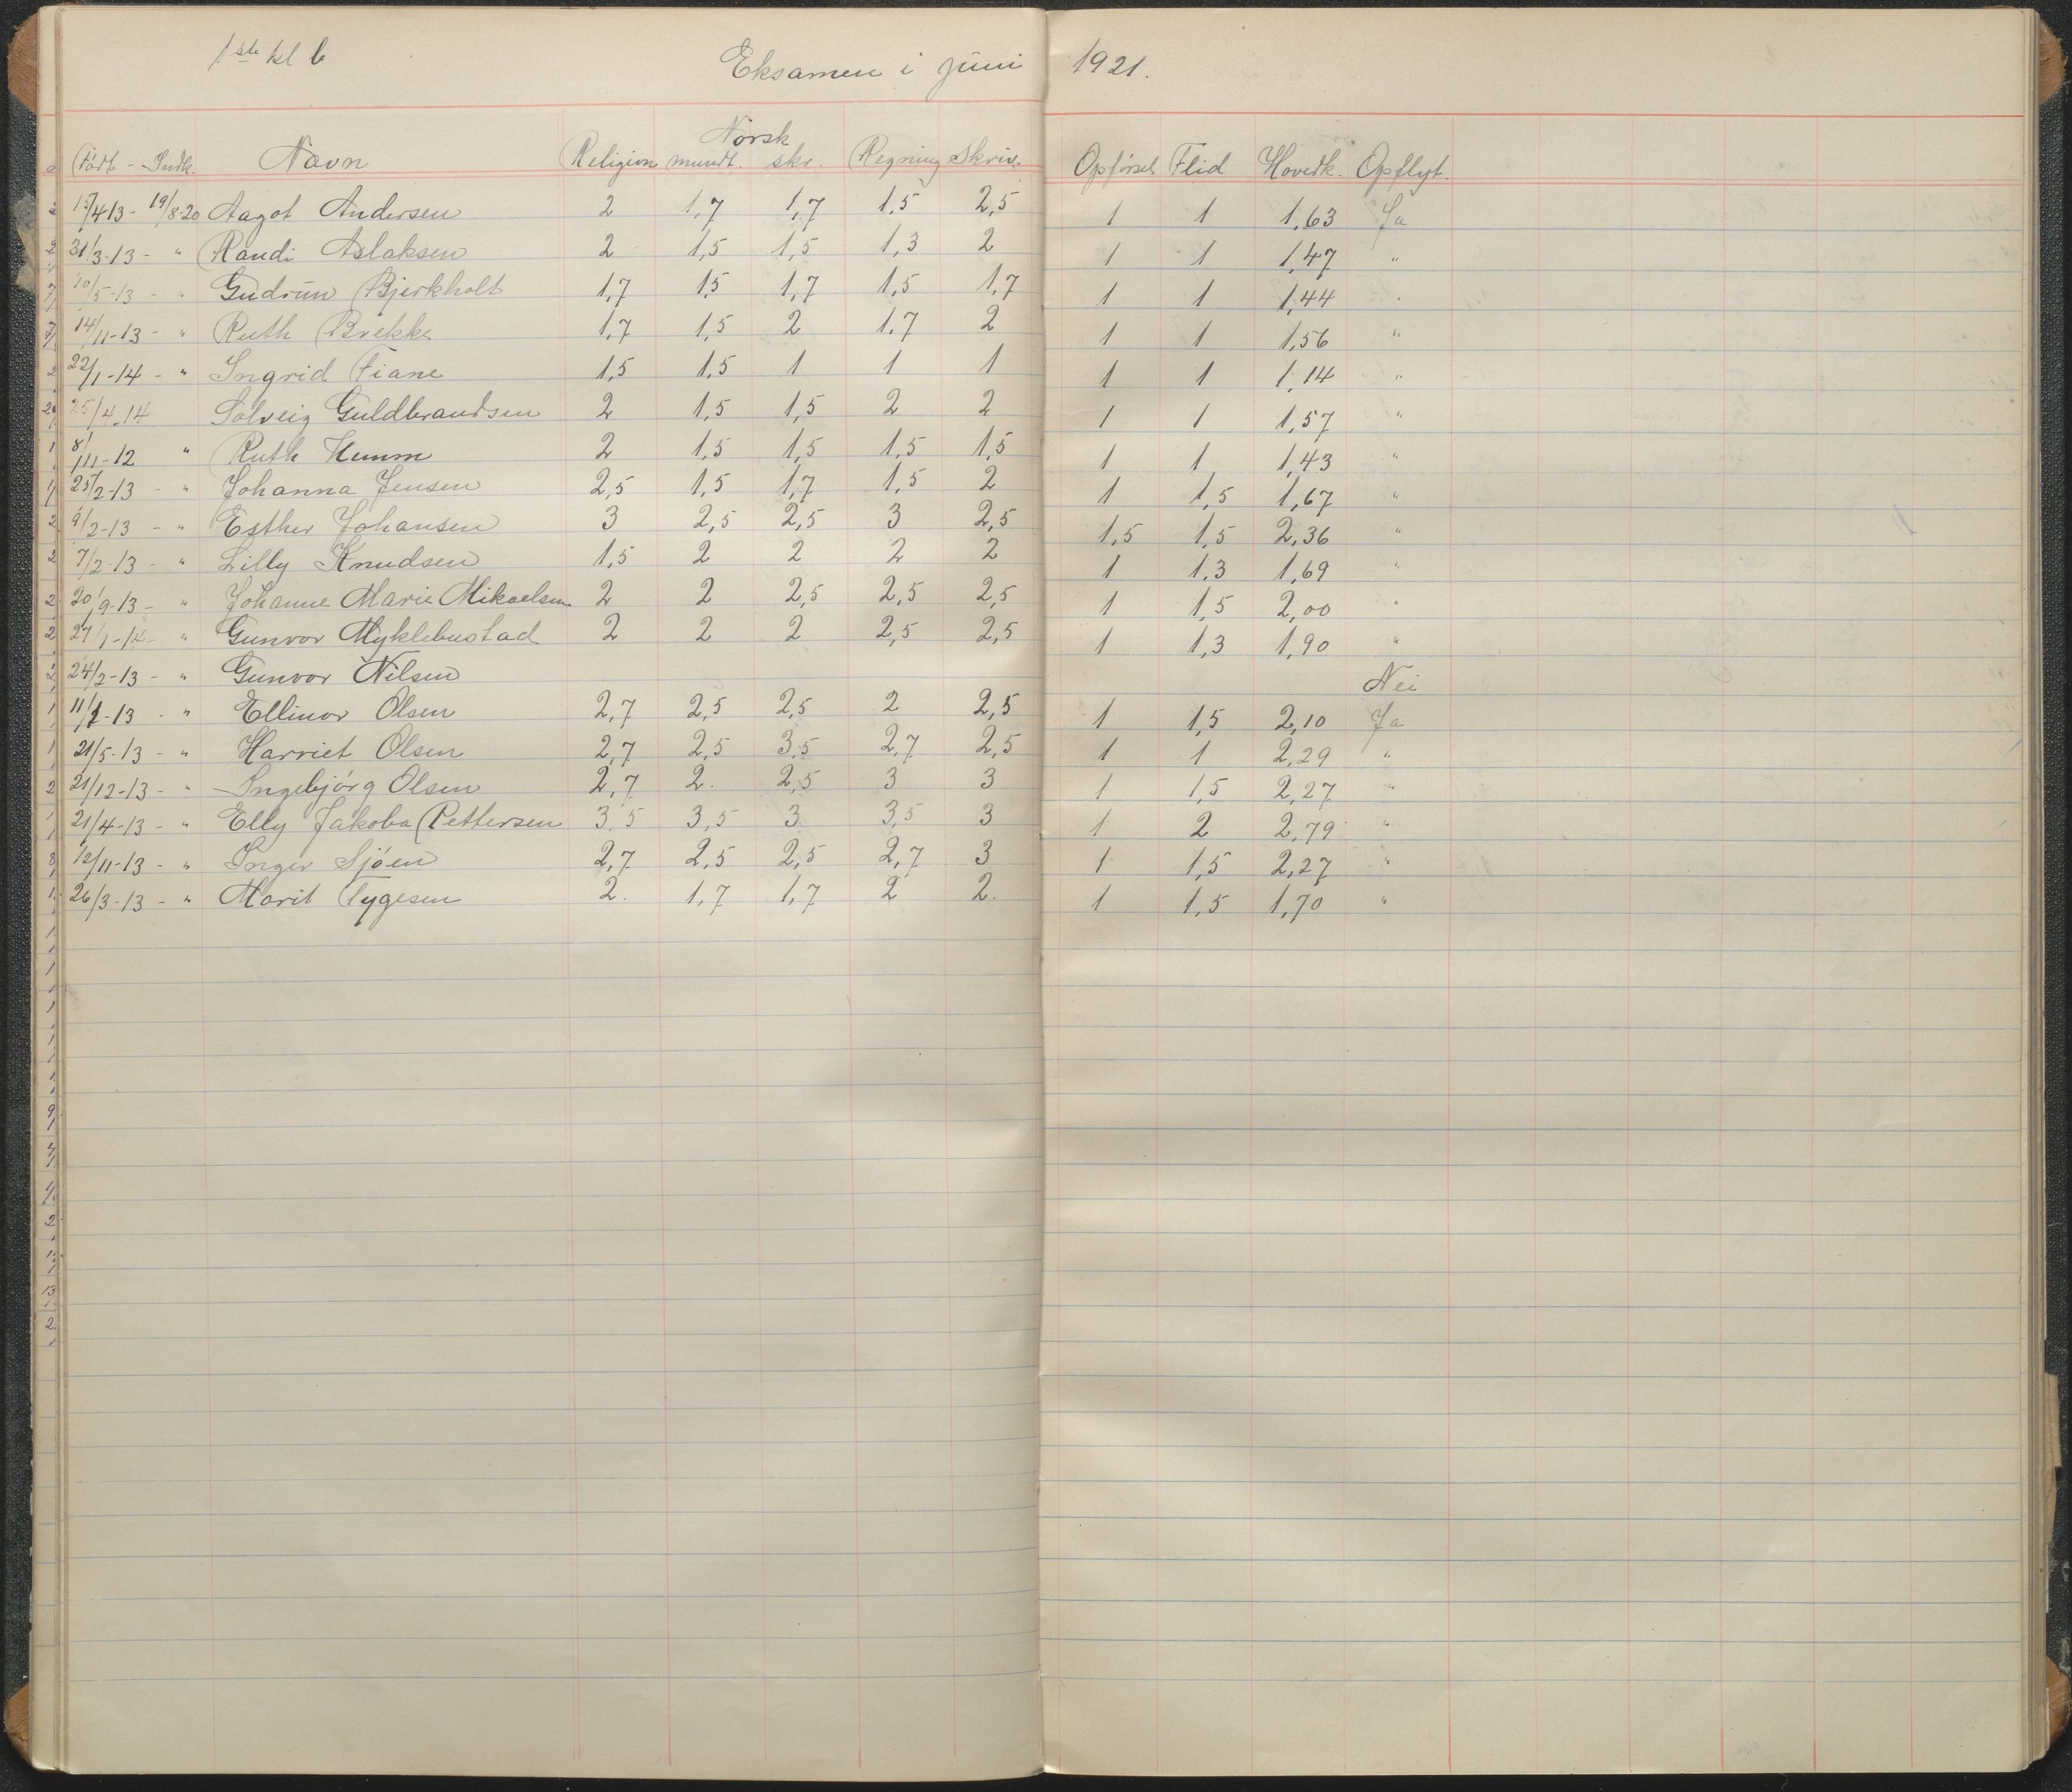 1ste kl b Eksamen i juni 1921.
Norsk
Født - Indk. Navn Religion mundt. skr. Regning Skriv. Opførsel Flid Hovedk. Opflyt.
15/4 13 - 19/8-20 Aagot Andersen 2 1,7 1,7 1,5 2,5 1 1 1,63 Ja
31/3-13 - " Randi Aslaksen 2 1,5 1,5 1,3 2 1 1 1,47 "
10/5-13 - " Gudrun Bjerkholt 1,7 1,5 1,7 1,5 1,7 1 1 1,44 "
14/11-13 - " Ruth Brekke 1,7 1,5 2 1,7 2 1 1 1,56 "
22/1-14 - " Ingrid Fiane 1,5 1,5 1 1 1 1 1 1,14 "
25/4-14 Solveig Guldbrandsen 2 1,5 1,5 2 2 1 1 1,57 "
8/11-12 " Ruth Humm 2 1,5 1,5 1,5 1,5 1 1 1,43 "
25/2-13 - " Johanna Jensen 2,5 1,5 1,7 1,5 2 1 1,5 1,67 "
9/2-13 - " Esther Johansen 3 2,5 2,5 3 2,5 1,5 1,5 2,36 "
7/2-13 - " Lilly Knudsen 1,5 2 2 2 2 1 1,3 1,69 "
20/9-13 - " Johanne Marie Mikaelsen 2 2 2,5 2,5 2,5 1 1,5 2,00 "
27/1-14 - " Gunvor Myklebustad 2 2 2 2,5 2,5 1 1,3 1,90 "
24/2-13 - " Gunvor Nilsen Nei
11/1-13 - " Ellinor Olsen 2,7 2,5 2,5 2 2,5 1 1,5 2,10 Ja
21/5-13 - " Harriet Olsen 2,7 2,5 3,5 2,7 2,5 1 1 2,29 "
21/12-13 - " Ingebjørg Olsen 2,7 2. 2,5 3 3 1 1,5 2,27 "
21/4-13 - " Elly Jakoba Pettersen 3,5 3,5 3 3,5 3 1 2 2,79 "
12/11-13 - " Inger Sjøen 2,7 2,5 2,5 2,7 3 1 1,5 2,27 "
26/3-13 - " Marit Tygesen 2. 1,7 1,7 2 2. 1 1,5 1,70 "